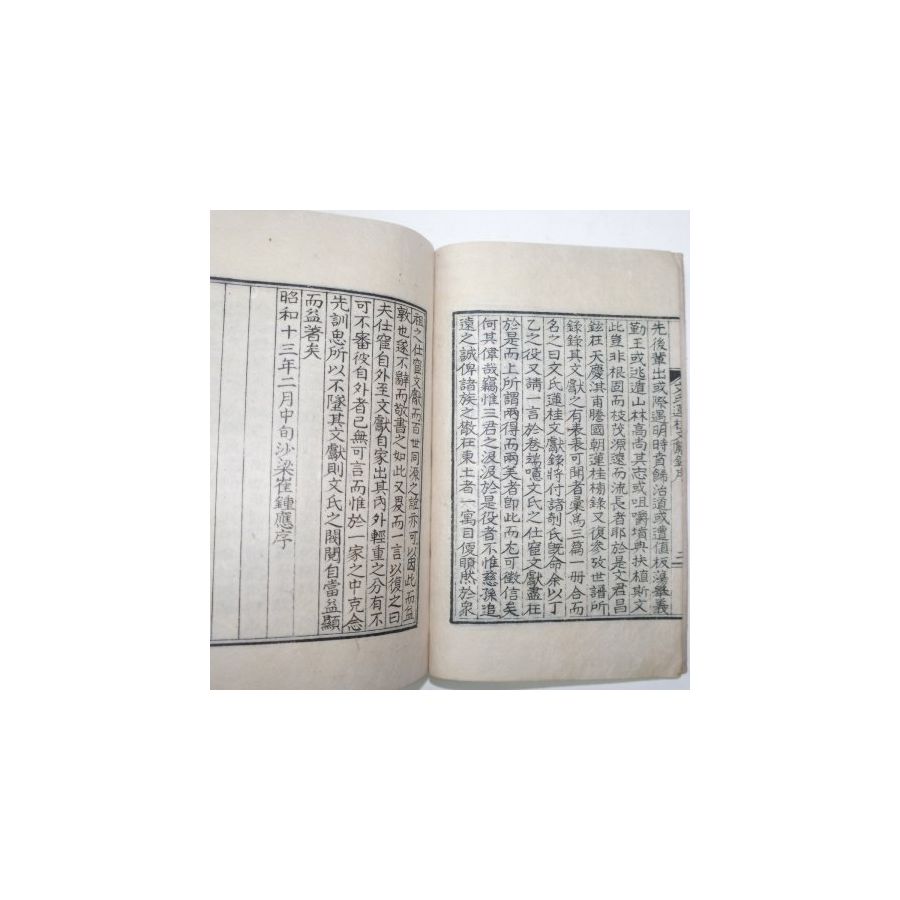 先後輩出或際遇明時賁餙治道或遭値板蕩擧義
勤王或逃遁山林高尚其志或咀嚼墳典扶植斯文
此豈非根固而枝茂源遠而流長者耶於是文君昌
鉉在天慶淇甫騰國朝蓮桂榜錄又復參攷世譜所
錄錄其文獻之有表表可聞者彙爲三篇一册合而
名之曰文氏蓮桂文獻錄將付諸剞氏旣命余以丁
乙之役又請一言於卷端噫文氏之仕宦文獻盡在
於是而上所謂兩得而兩美者卽此而尤可徵信矣
何其偉哉竊惟三君之汲汲於是役者不惟慈孫追
遠之誠俾諸族之散在東土者一寓目便顋然於泉
文氏蓮桂文獻錄序 二
祖之仕宦文獻而百世同源之誼亦可以因此而益
敦也遂不辭而敬書之如此又爰而一言以復之曰
夫仕宦自外至文獻自家出其內外輕重之分有不
可不審彼自外者已無可言而惟於一家之中克念
先訓思所以不墜其文獻則文氏之閥閱自當益顯
而益著矣
昭和十三年二月中旬沙梁崔鍾應序